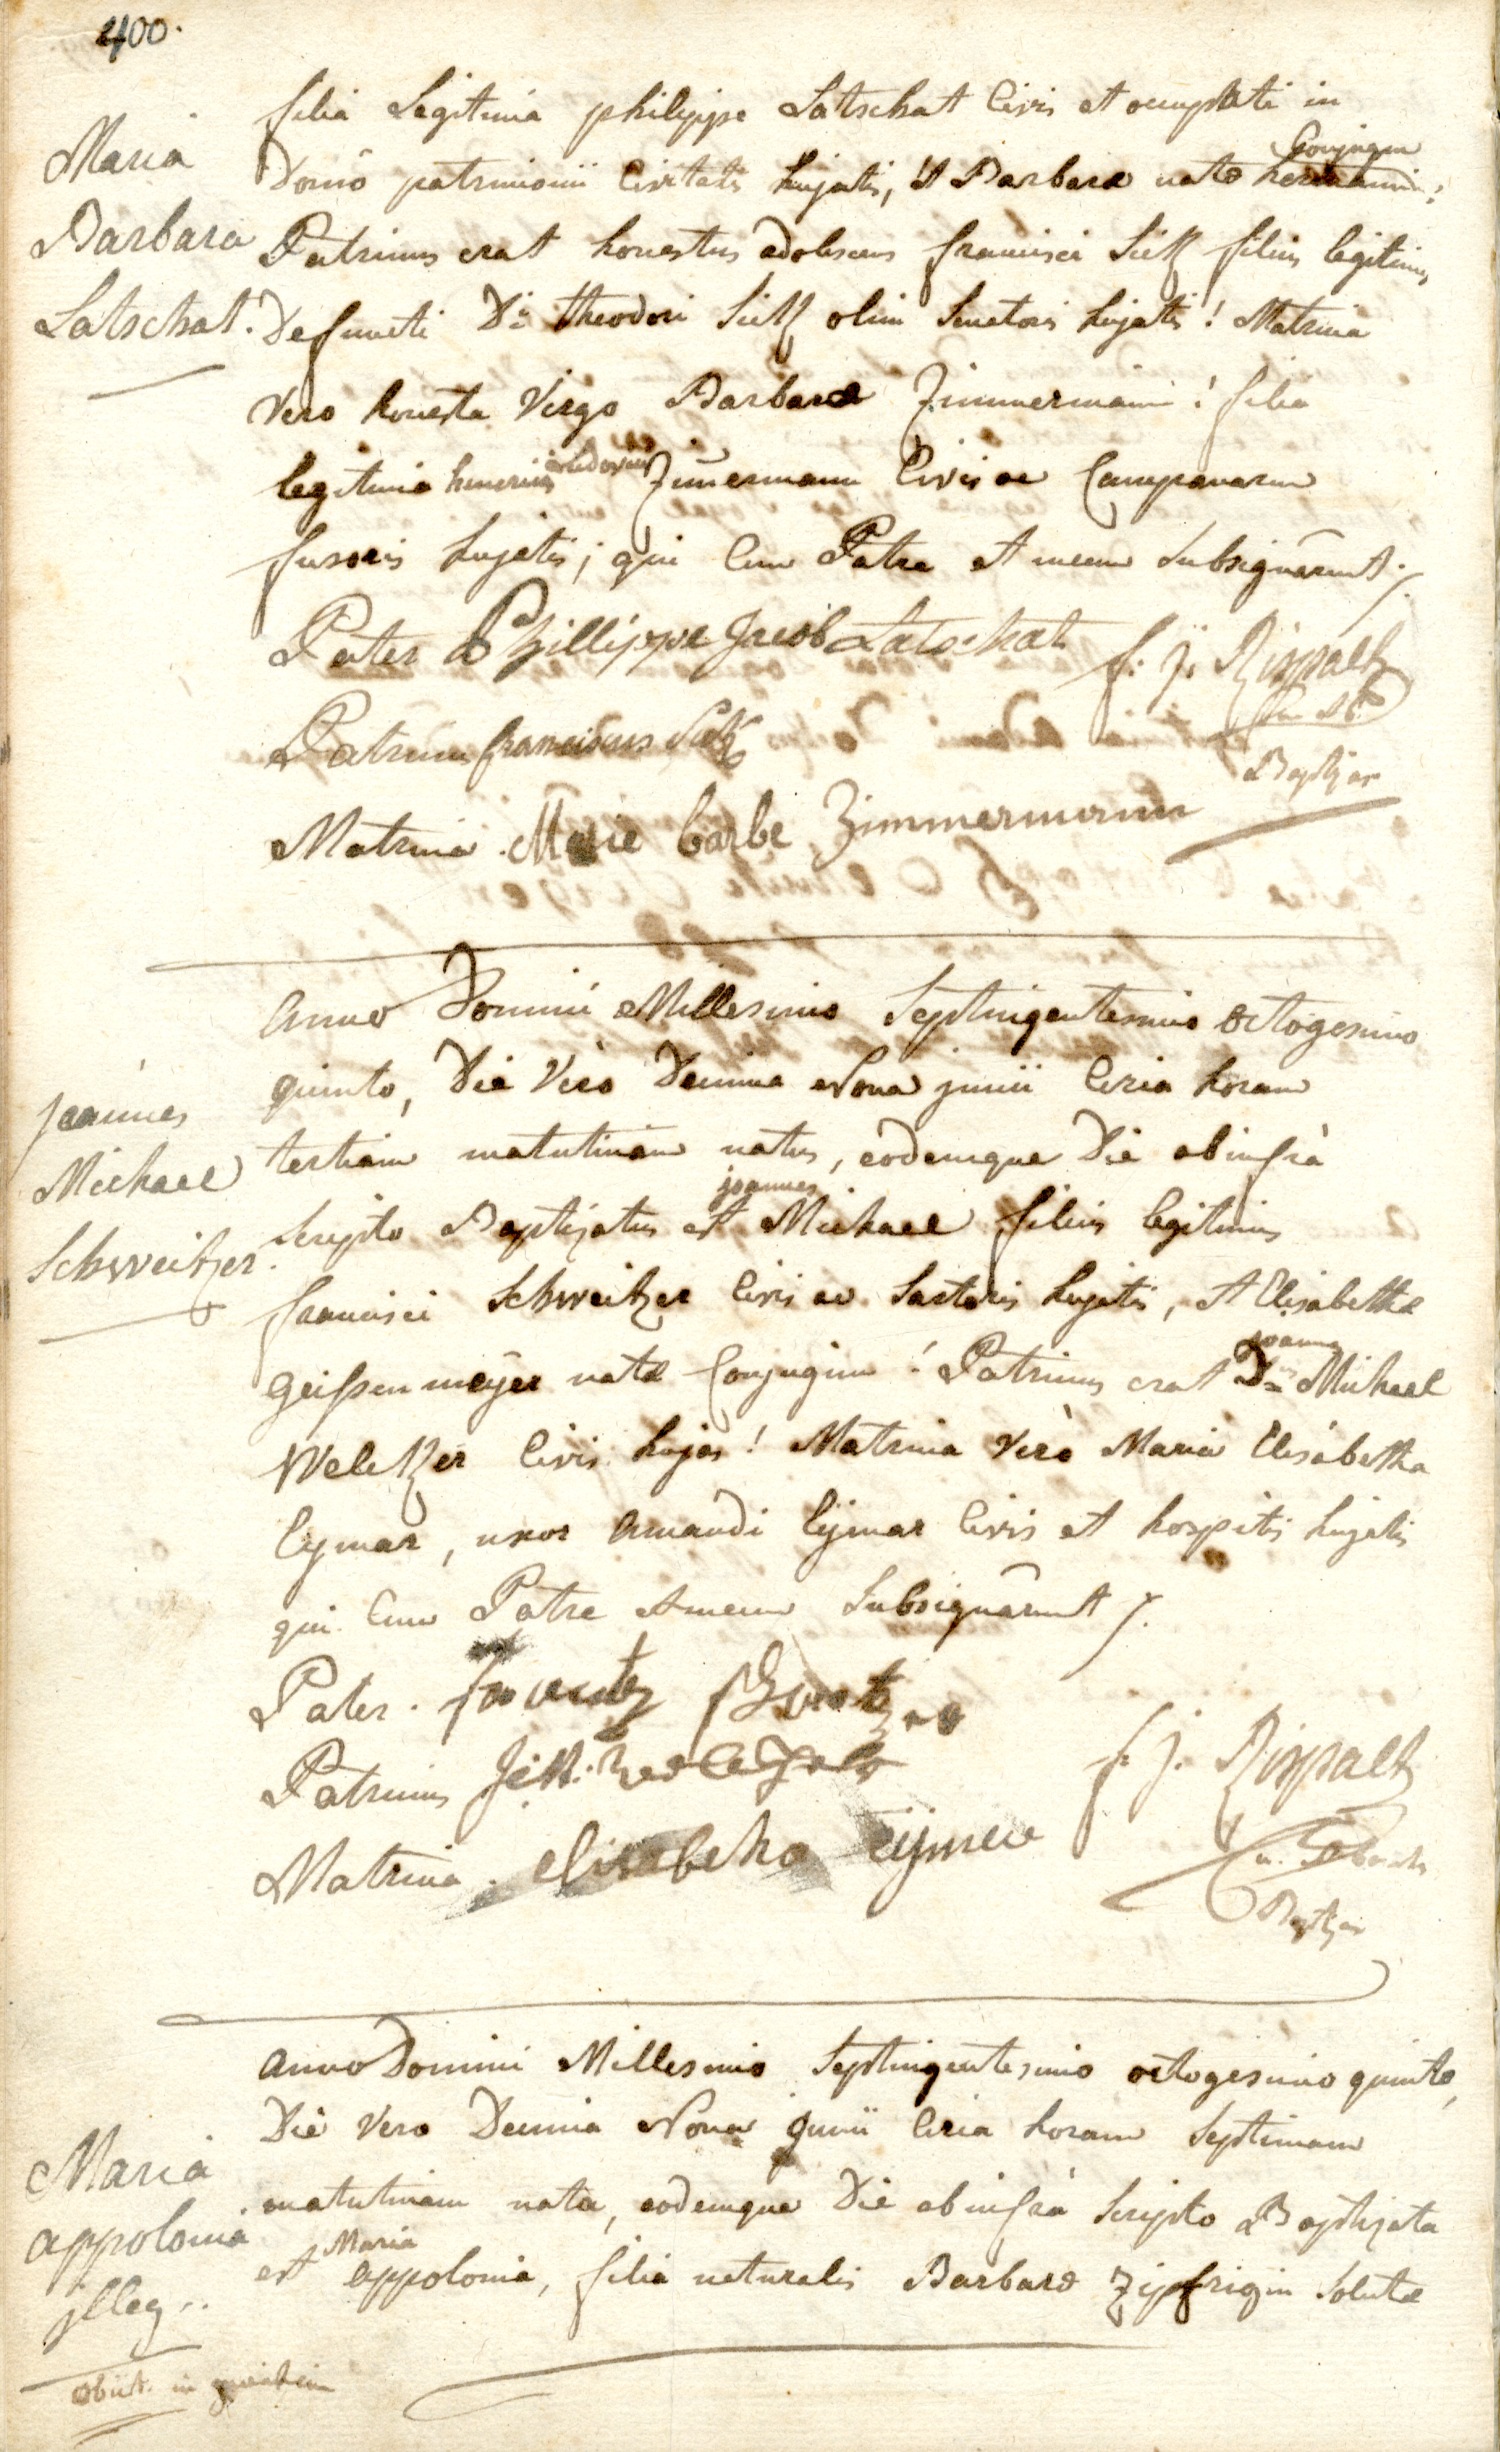 400.
Maria
Barbara
Latschat.
filia Legitima philippe Latschat Civis et occupati in
Domo patrimonii Civitatis hujatis, et Barbara nata
Conjugum
Patrinus erat honestus adolescens francisci filius legitimus
Defuncti Di theodori olim Senatoris hujatis! Matrina
Vero honesta Virgo Barbara Zimmermann! filia
legitima Zimermann Civis ac Campanarum
fusoris hujatis; qui Cum Patre et mecum Subsignarunt ./.
Pater Phillippe Jacob Latschat
f: j: Rippaltz
Patrinus franciscus
Baptizans
Matrina. Marie barbe Zimmermann
Joannes
Michael
Schweitzer.
anno Domini Millesimo Septingentesimo octogesimo
quinto, Die Vero Decima Nona junii Circa horam
tertiam matutinam natus, eodemque Die ab infrà
joannes
Scripto Baptizatus est Michael filius legitimus
francisci Schweitzer Civis ac Sartoris hujatis, et Elisabetha
geissenmeÿer nata Conjugum! Patrinus erat Dnus Michael
joannes
Weltzer Civis hujas! Matrina Verò Maria Elisabetha
Cymar, uxor amandi Cÿmar Civis et hospitis hujatis
qui Cum Patre et mecum Subsignârunt ./.
Pater.
Patrinus
f. j. Rippaltz
Matrina. elisabetha
Baptizans
Maria
appolonia
jlleg..
obiit in
anno Domini Millesimo Septingentesimo octogesimo quinto,
Diè Vero Decima Nona Junii Circa horam Septimam
matutinam nata, eodemque Die ab infrà Scripto Baptizata
Maria
est appolonia, filia naturalis Barbara Zipfrigin Soluta